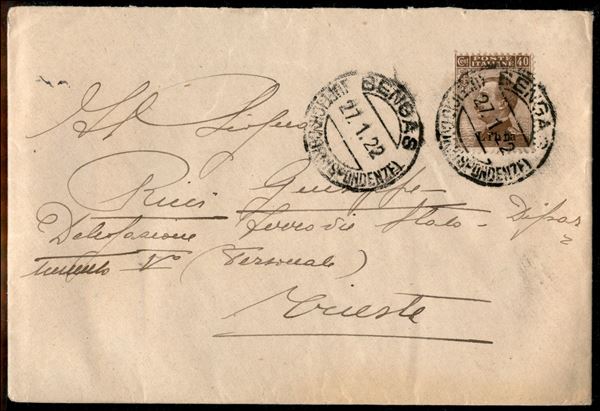 POSTE
ITALIANE
Cmi 40
Libia
BENGASI
27.1.22
(CORRISPONDENZE)
BENGASI
27.1.22
(CORRISPONDENZE)
Al Signor
Ricci Giuseppe
Delegazione Ferrovie Stato - Dipar
timento V° (Personale)
Trieste